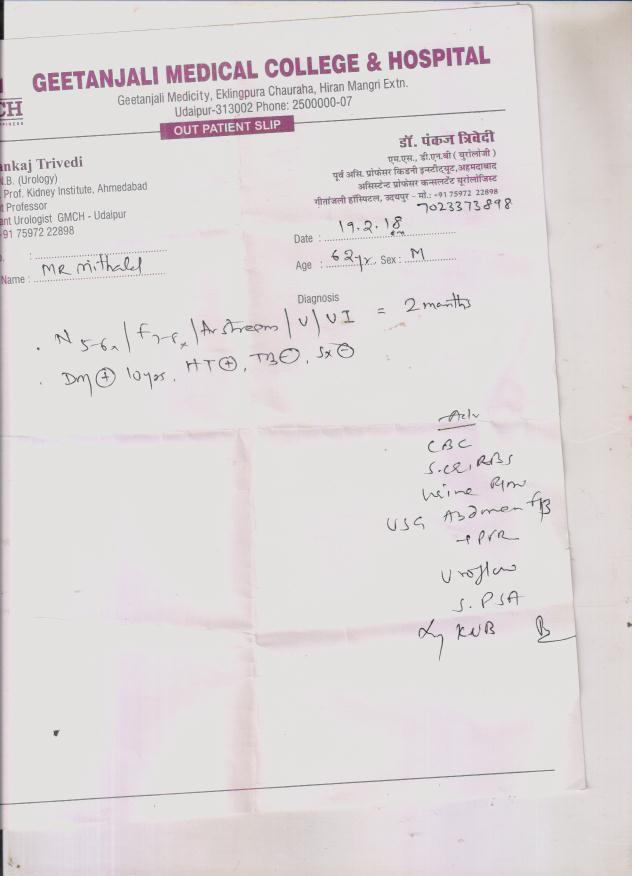 GEETANJALI MEDICAL COLLEGE & HOSPITAL
Geetanjali Medicity, Eklingpura Chauraha, Hiran Mangri Extn.
Udaipur-313002 Phone: 2500000-07
CH
OUT PATIENT SLIP
ankaj Trivedi
N.B. (Urology)
Prof. Kidney Institute, Ahmedabad
t Professor
ant Urologist GMCH - Udaipur
+91 75972 22898
डॉ. पंकज त्रिवेदी
एम.एस., डी.एन.बी ( यूरोलोजी )
पूर्व असि. प्रोफेसर किडनी इन्स्टीट्यूट, अहमदाबाद
असिस्टेन्ट प्रोफेसर कन्सलटेंट यूरोलॉजिस्ट
गीतांजली हॉस्पिटल, उदयपुर - मो.: +91 75972 22898
7023373898
Date : 19.2.18
Name : MR Mithalal
Age : 62yr Sex : M
Diagnosis
N 5-6x / F / stream / U / UI = 2 months
DM ⊕ 10 yrs, HT ⊕, TB ⊖, Sx ⊖
Adv
CBC
S.CR, RBS
Urine R/M
USG Abdomen
+ PVR
Uroflow
S. PSA
KUB